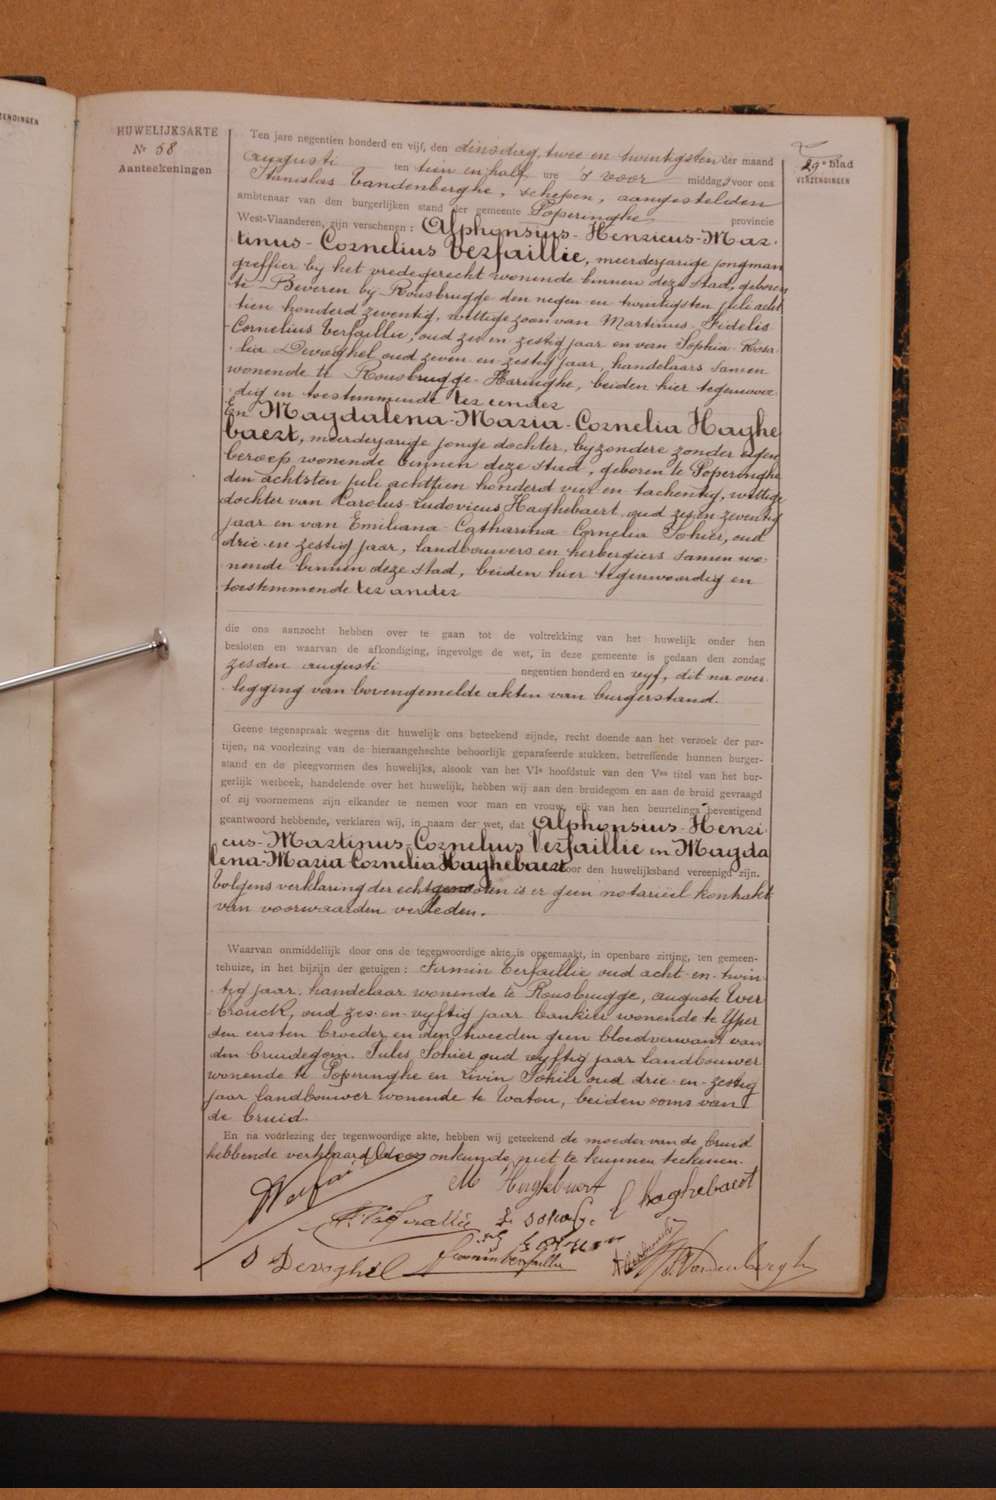 ZENDINGEN
HUWELIJKSAKTE
Nr 58
Aanteekeningen
29e blad
VERZENDINGEN
Ten jare negentien honderd en vijf, den dinsdag, twee en twintigsten der maand
augusti ten tien en half ure 's voor middags voor ons
Stanislas Vandenberghe, schepen, aangestelden
ambtenaar van den burgerlijken stand der gemeente Poperinghe provincie
West-Vlaanderen, zijn verschenen: Alphonsius-Henricus-Mar-
tinus-Cornelius Verfaillie, meerderjarige jongman
greffier bij het vredegerecht wonende binnen deze stad, geboren
te Beveren bij Rousbrugge den negen en twintigsten juli acht
tien honderd zeventig, wettige zoon van Martinus-Fidelis
-Cornelius Verfaillie, oud zes en zestig jaar en van Sophia-Rosa
lia Devoghel oud zeven en zestig jaar, handelaars samen
wonende te Rousbrugge-Haringhe, beiden hier tegenwoor
dig en toestemmende ter eender
En Magdalena-Maria-Cornelia Haghe
baert, meerderjarige jonge dochter, bijzondere zonder eigen
beroep wonende binnen deze stad, geboren te Poperinghe
den achtsten juli achttien honderd vier en tachentig, wettige
dochter van Karolus-Ludovicus Haghebaert oud zes en zeventig
jaar en van Emiliana-Catharina-Cornelia Sohier, oud
drie en zestig jaar, landbouwers en herbergiers samen wo-
nende binnen deze stad, beiden hier tegenwoordig en
toestemmende ter ander
die ons aanzocht hebben over te gaan tot de voltrekking van het huwelijk onder hen
besloten en waarvan de afkondiging, ingevolge de wet, in deze gemeente is gedaan den zondag
zesden augusti negentien honderd en vijf, dit na over
legging van bovengemelde akten van burgerstand.
Geene tegenspraak wegens dit huwelijk ons beteekend zijnde, recht doende aan het verzoek der par-
tijen, na voorlezing van de hieraangehechte behoorlijk geparafeerde stukken, betreffende hunnen burger-
stand en de pleegvormen des huwelijks, alsook van het VIe hoofdstuk van den Ven titel van het bur-
gerlijk wetboek, handelende over het huwelijk, hebben wij aan den bruidegom en aan de bruid gevraagd
of zij voornemens zijn elkander te nemen voor man en vrouw, elk van hen beurtelings bevestigend
geantwoord hebbende, verklaren wij, in naam der wet, dat Alphonsius-Henri
cus-Martinus-Cornelius Verfaillie en Magda
lena-Maria-Cornelia Haghebaert door den huwelijksband vereenigd zijn.
Volgens verklaring der echtgenooten is er geen notariëel kontrakt
van voorwaarden verleden.
Waarvan onmiddellijk door ons de tegenwoordige akte is opgemaakt, in openbare zitting, ten gemeen-
tehuize, in het bijzijn der getuigen: Firmin Verfaillie oud acht en twin
tig jaar, handelaar wonende te Rousbrugge, auguste Wer
brouck, oud zes en vijftig jaar bankier wonende te Yper
den eersten broeder en den tweeden geen bloedverwant van
den bruidegom. Jules Sohier oud vijftig jaar landbouwer
wonende te Poperinghe en Livin Sohier oud drie en zestig
jaar landbouwer wonende te Watou, beiden ooms van
de bruid.
En na voorlezing der tegenwoordige akte, hebben wij geteekend de moeder van de bruid
hebbende verklaard door onkunde niet te kunnen teekenen.
M Haghebaert
C haghebaert
S Devoghel
Firmin Verfaillie
Vandenberghe